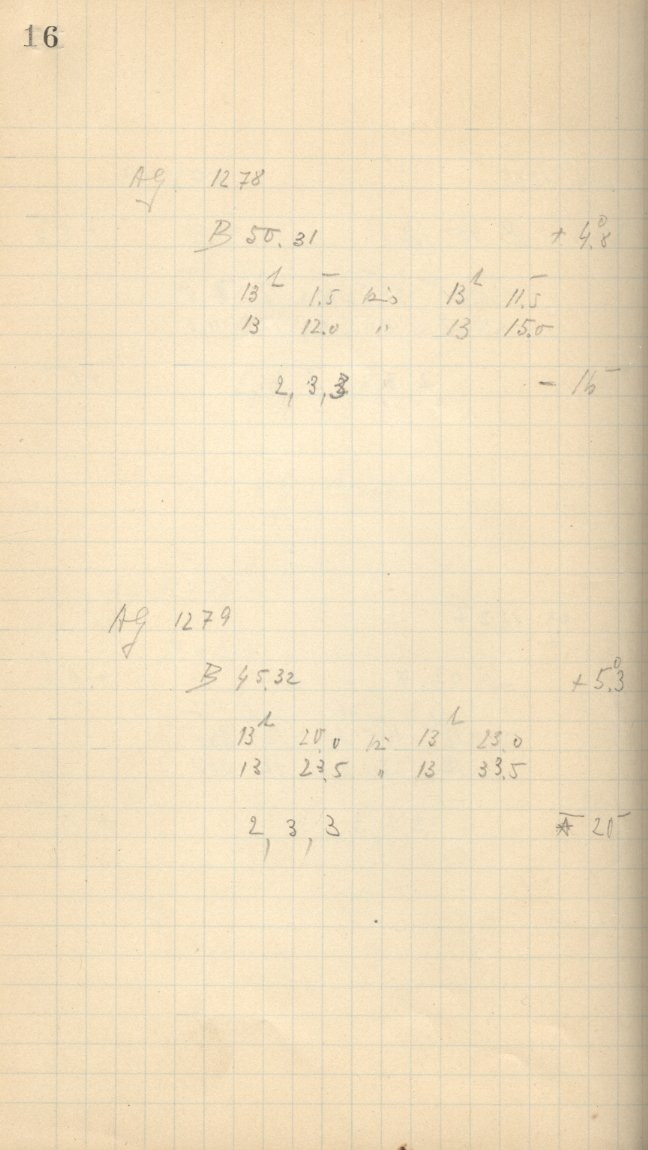 16
AG 1278
B 50.31 + 4.°8
13ʰ 1.5 bis 13ʰ 11.5
13 12.0 " 13 15.0
2, 3, 3 - 15
AG 1279
B 45.32 + 5.°3
13ʰ 20.0 bis 13ʰ 23.0
13 23.5 " 13 33.5
2, 3, 3 20